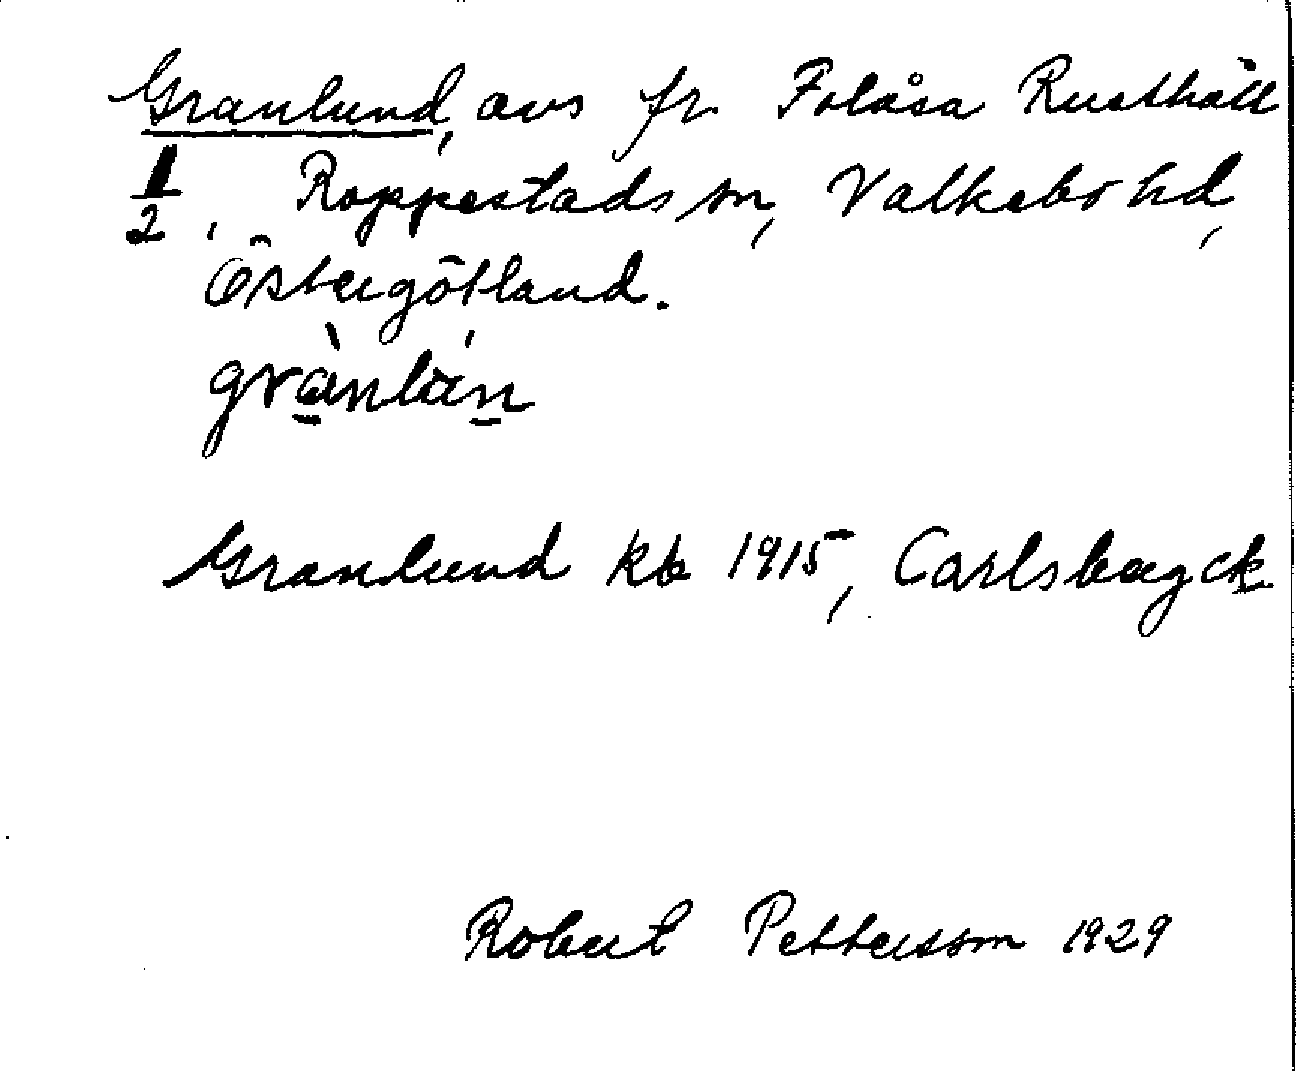 Granlund, avs fr. Folåsa Rusthåll
1/2, Rappestads sn, Valkebo hd,
Östergötland.
Granlund kb 1915, Carlsbagck
Robert Pettersson 1929